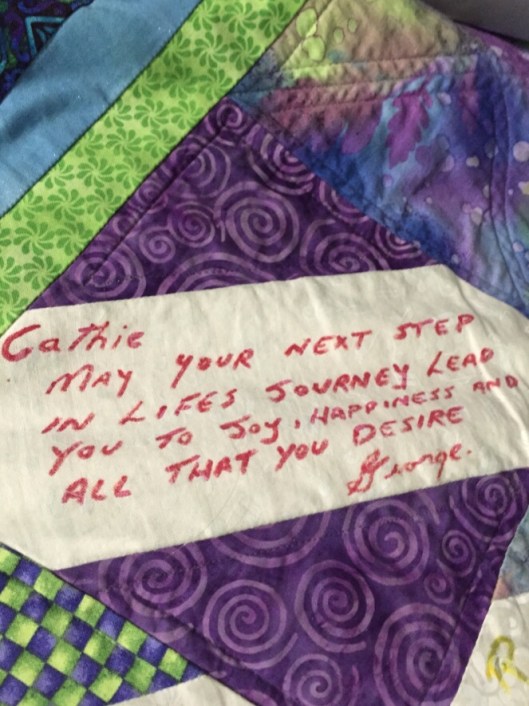 Cathie
MAY YOUR NEXT STEP
IN LIFES JOURNEY LEAD
YOU TO JOY, HAPPINESS AND
ALL THAT YOU DESIRE
George.